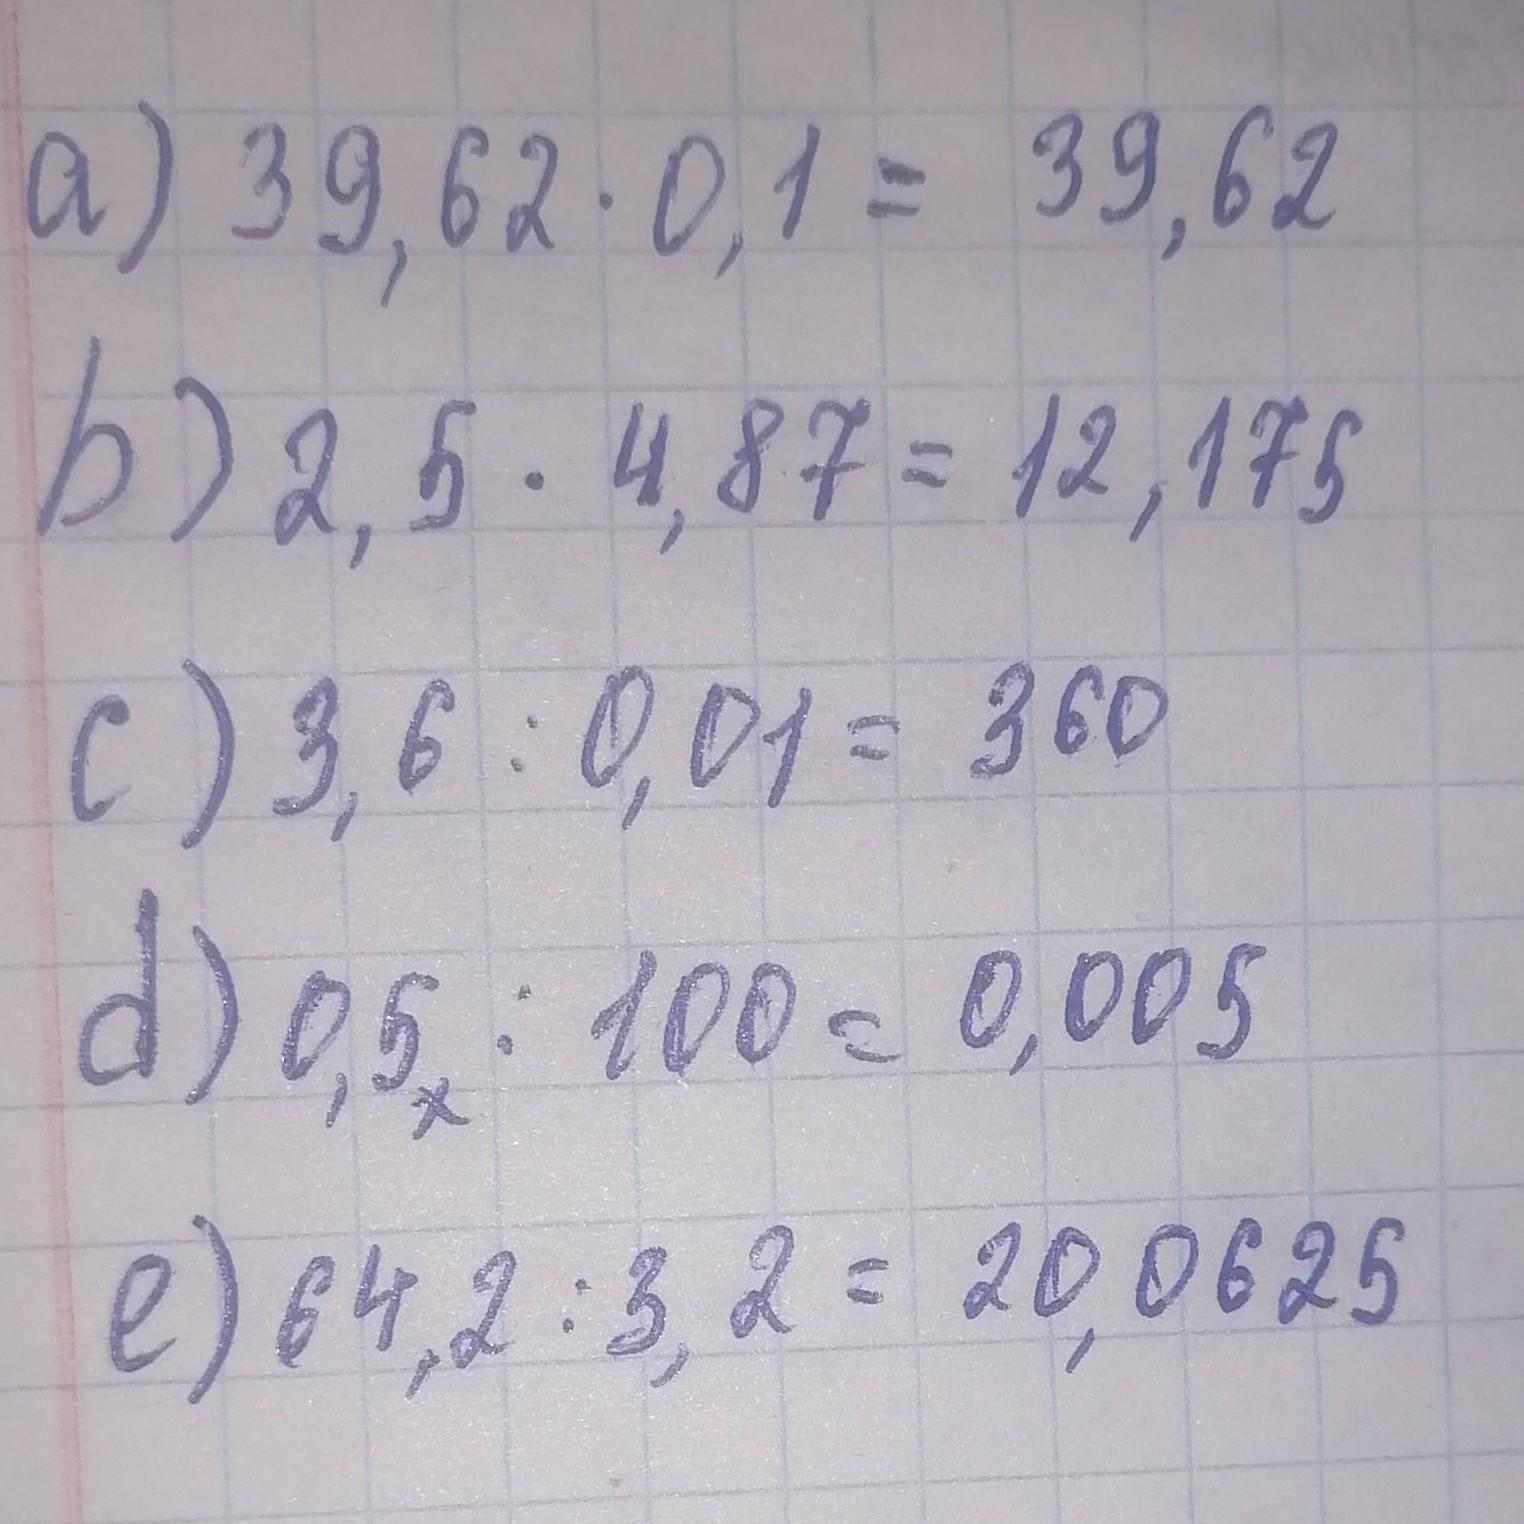 a) 39,62 · 0,1 = 39,62
b) 2,5 · 4,87 = 12,175
c) 3,6 : 0,01 = 360
d) 0,5 : 100 = 0,005
x
e) 64,2 : 3,2 = 20,0625